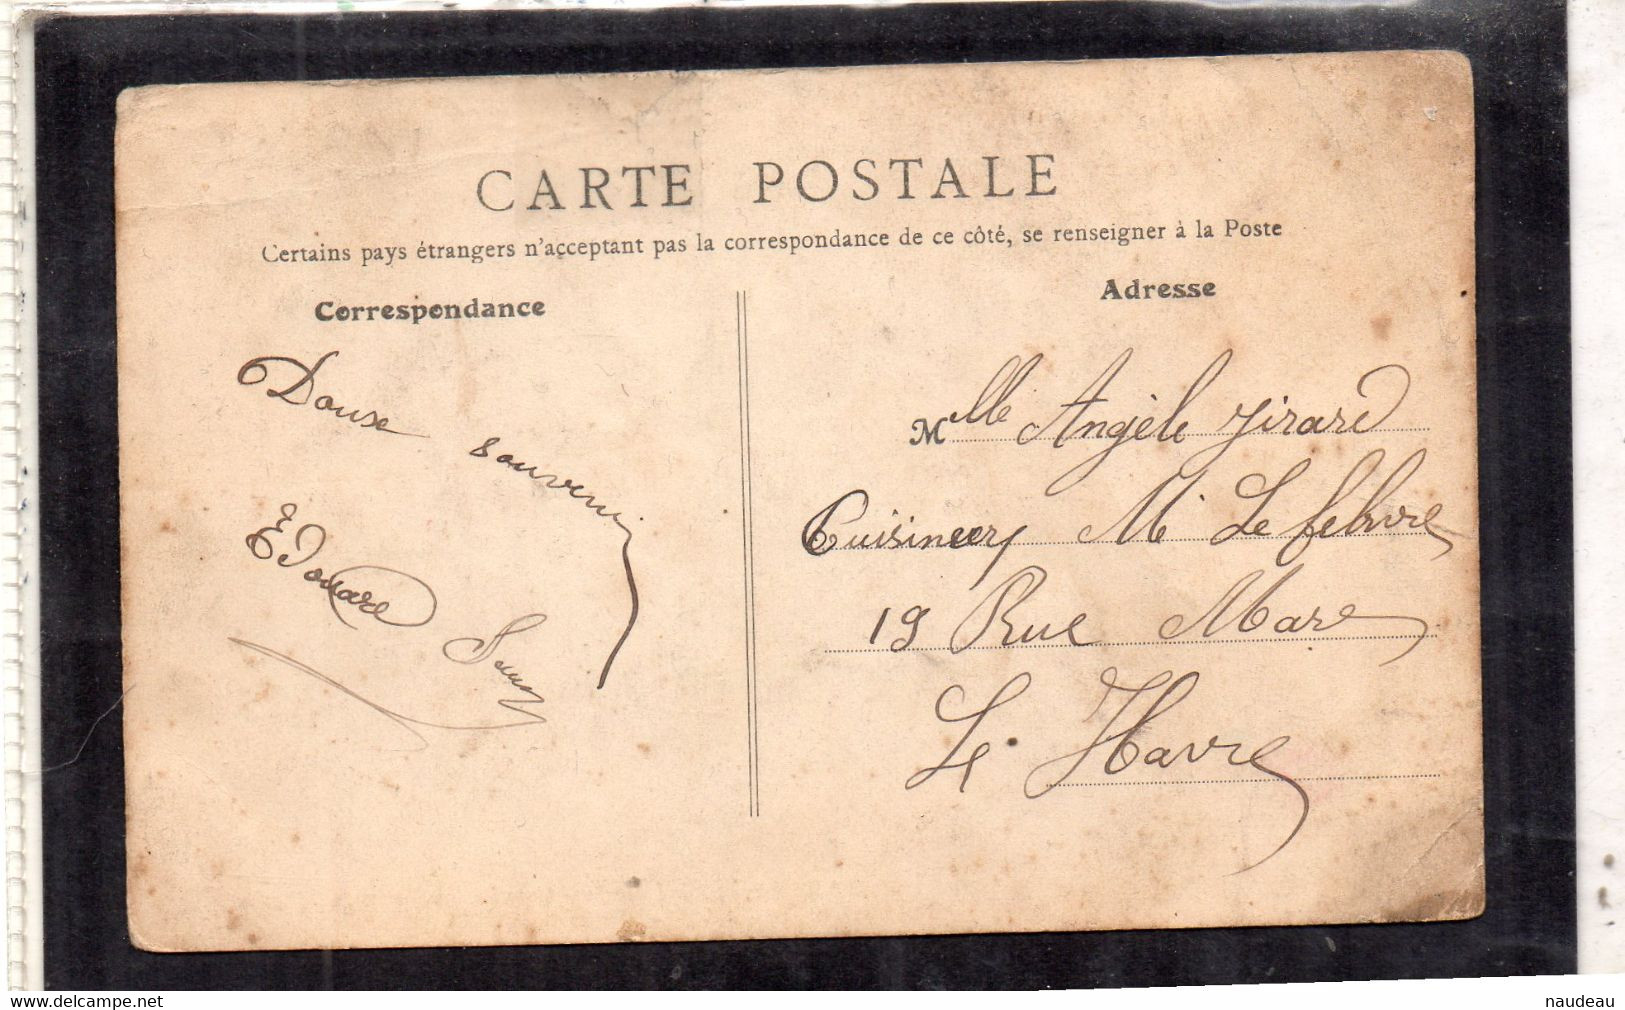 CARTE POSTALE
Certains pays étrangers n'acceptant pas la correspondance de ce côté, se renseigner à la Poste
Correspondance
Douse souvenir
Edouard
Adresse
Mlle Angèle Girard
M Lefebvre
19 Rue Mare
Le Havre
www.delcampe.net
naudeau